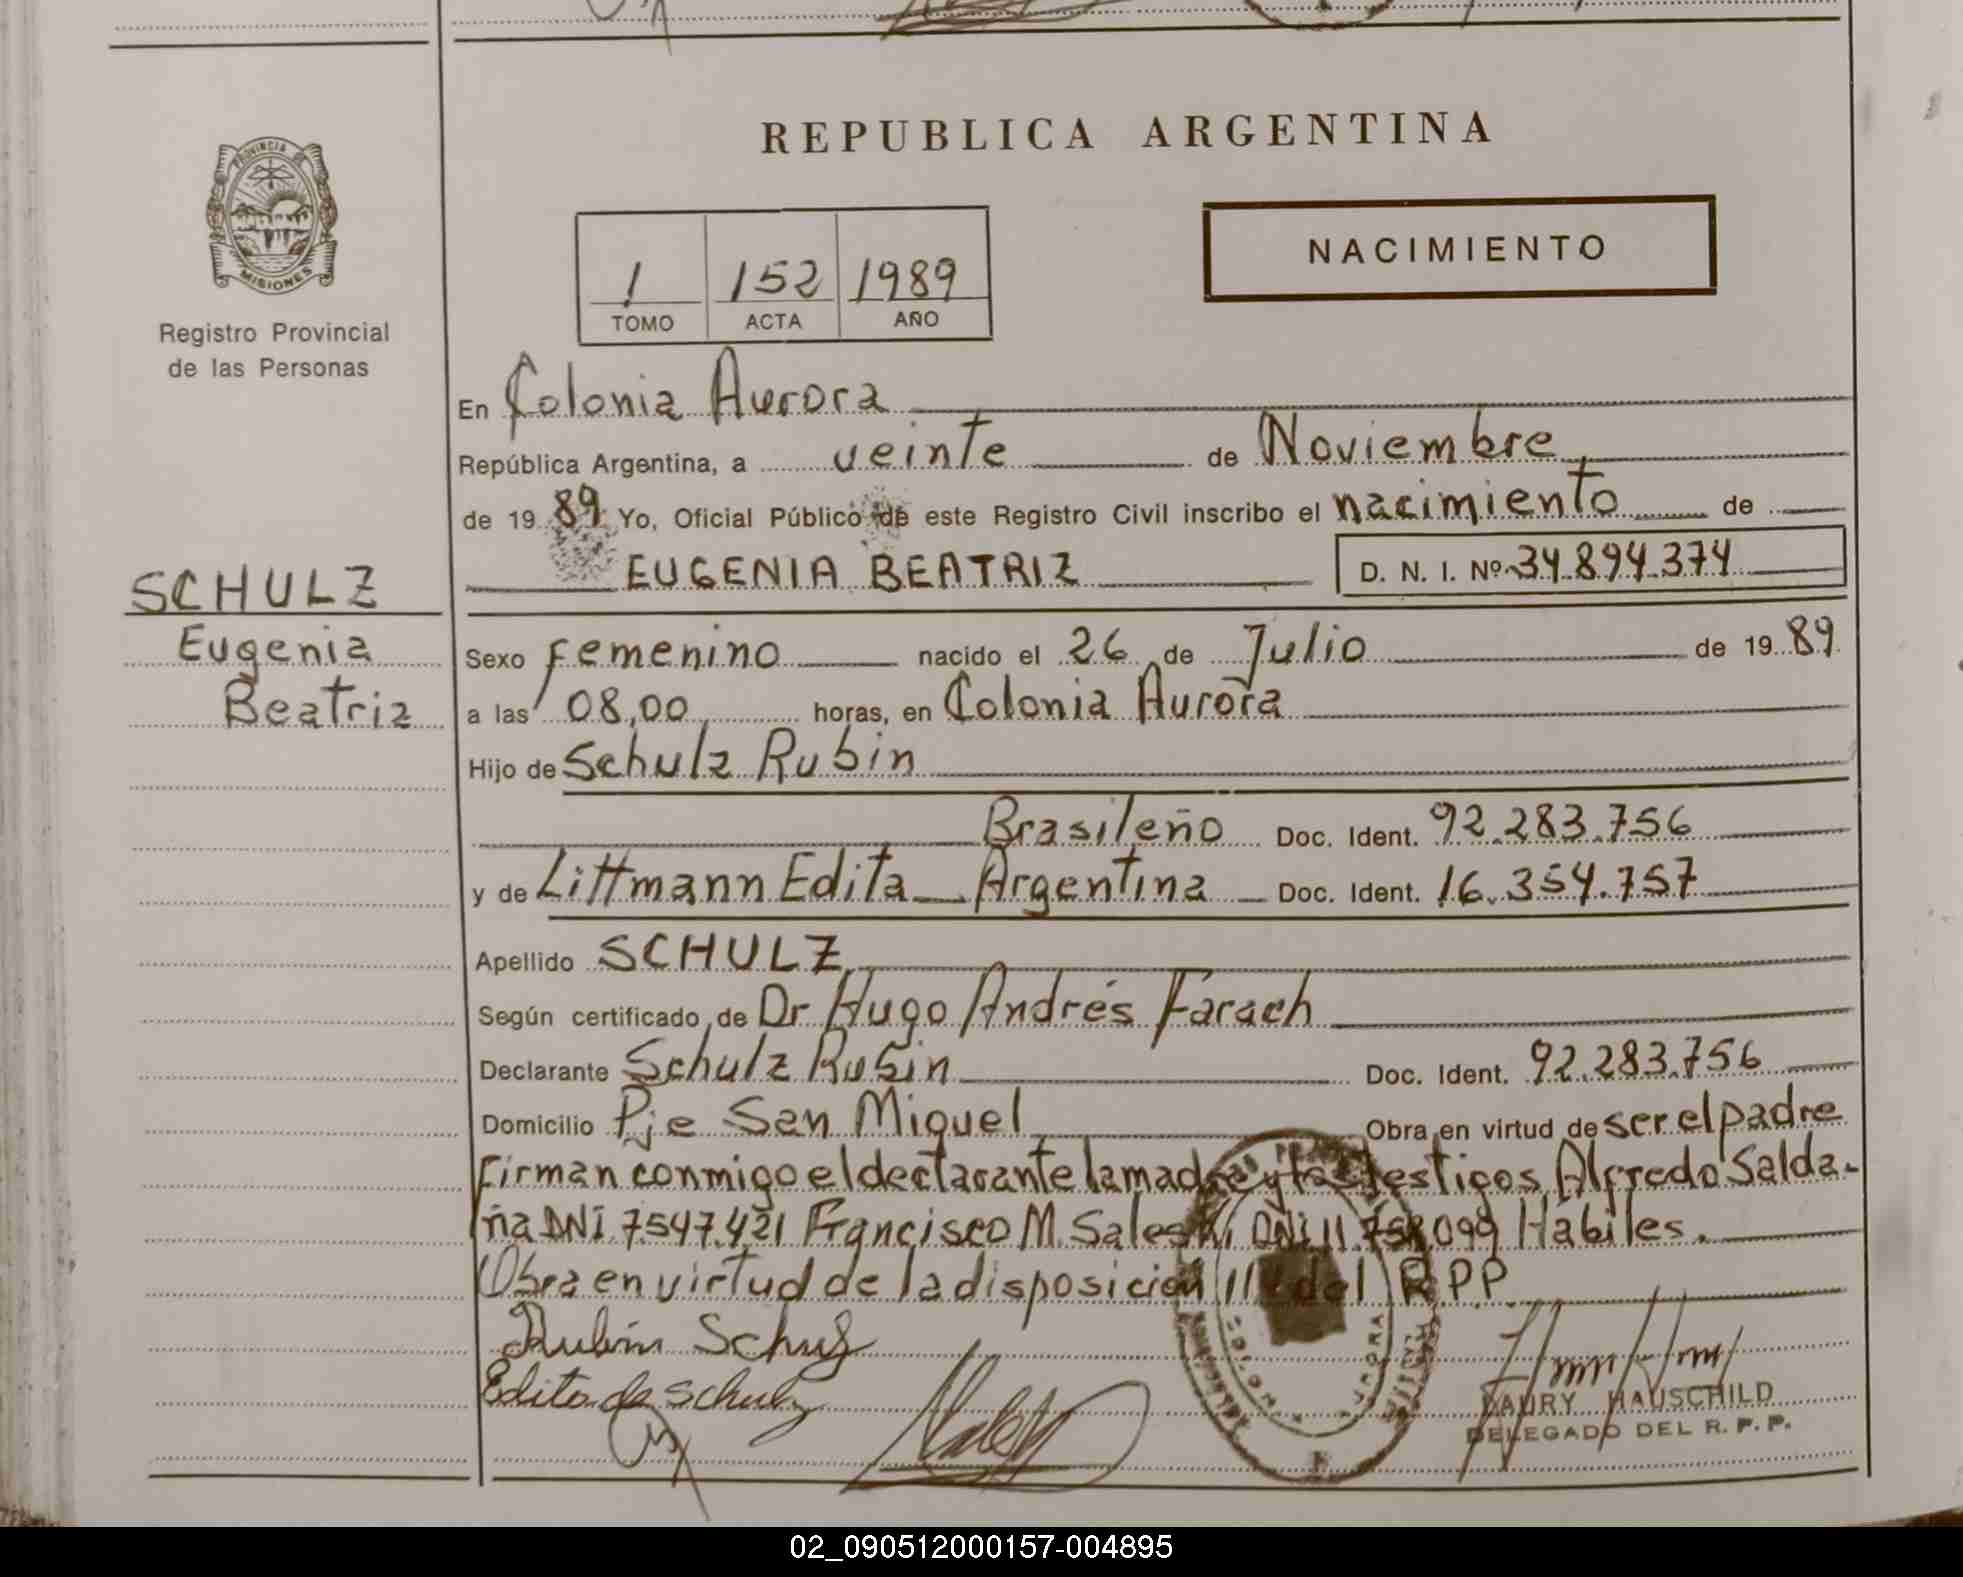 REPUBLICA ARGENTINA
PROVINCIA DE
MISIONES
Registro Provincial
de las Personas
NACIMIENTO
1 152 1989
TOMO ACTA AÑO
En Colonia Aurora
República Argentina, a veinte de Noviembre
de 1989 Yo, Oficial Público de este Registro Civil inscribo el nacimiento de
EUGENIA BEATRIZ D. N. I. Nº 34.894.374
SCHULZ
Eugenia
Beatriz
Sexo Femenino nacido el 26 de Julio de 1989
a las 08,00 horas, en Colonia Aurora
Hijo de Schulz Rubin
Brasileño Doc. Ident. 92.283.756
y de Littmann Edita Argentina Doc. Ident. 16.354.757
Apellido SCHULZ
Según certificado de Dr Hugo Andrés Farach
Declarante Schulz Rubin Doc. Ident. 92.283.756
Domicilio Pje San Miguel Obra en virtud de ser el padre
Firman conmigo el declarante la madre y los testigos Alfredo Salda-
ña DNI 7547.421 Francisco M. Saleski DNI 11.758.099 Hábiles.
Obra en virtud de la disposición del R.P.P.
Rubin Schulz
Edita de Schulz
HAUSCHILD
DELEGADO DEL R. P. P.
02_090512000157-004895